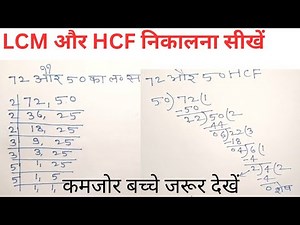 LCM और HCF निकालना सीखें
72 और 50 का ल० स
72 और 50 HCF
2 | 72, 50
2 | 36, 25
2 | 18, 25
3 | 9, 25
3 | 3, 25
5 | 1, 25
5 | 1, 5
1, 1
50)72(1
-50
22)50(2
44
06)22(3
-18
04)6(1
-4
2)4(2
-4
0 शेष
कमजोर बच्चे जरूर देखें